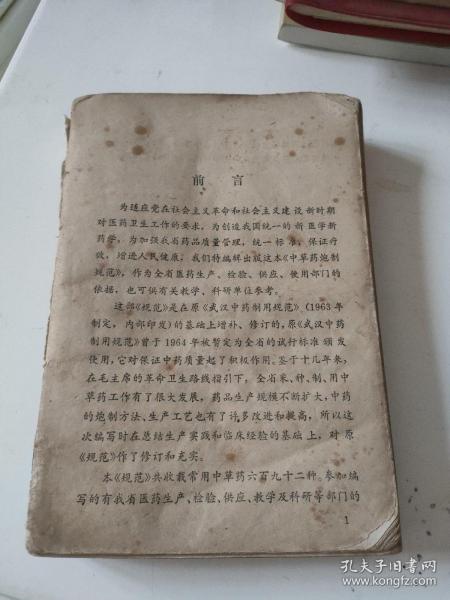 前言
为适应党在社会主义革命和社会主义建设新时期
对医药卫生工作的要求，为创造我国统一的新医学新
药学，为加强我省药品质量管理，统一标准，保证疗
效，增进人民健康，我们特编辑出版这本《中草药炮制
规范》，作为全省医药生产、检验、供应、使用部门的
依据，也可供有关教学、科研单位参考。
这部《规范》是在原《武汉中药制用规范》（1963年
制定，内部印发）的基础上增补、修订的，原《武汉中药
制用规范》曾于1964年被暂定为全省的试行标准颁发
使用，它对保证中药质量起了积极作用。鉴于十几年来，
在毛主席的革命卫生路线指引下，全省采、种、制、用中
草药工作有了很大发展，药品生产规模不断扩大，中药
的炮制方法、生产工艺也有了许多改进和提高，所以这
次编写时在总结生产实践和临床经验的基础上，对原
《规范》作了修订和充实。
本《规范》共收载常用中草药六百九十二种。参加编
写的有我省医药生产、检验、供应、教学及科研等部门的
1
孔夫子旧书网
www.kongfz.com